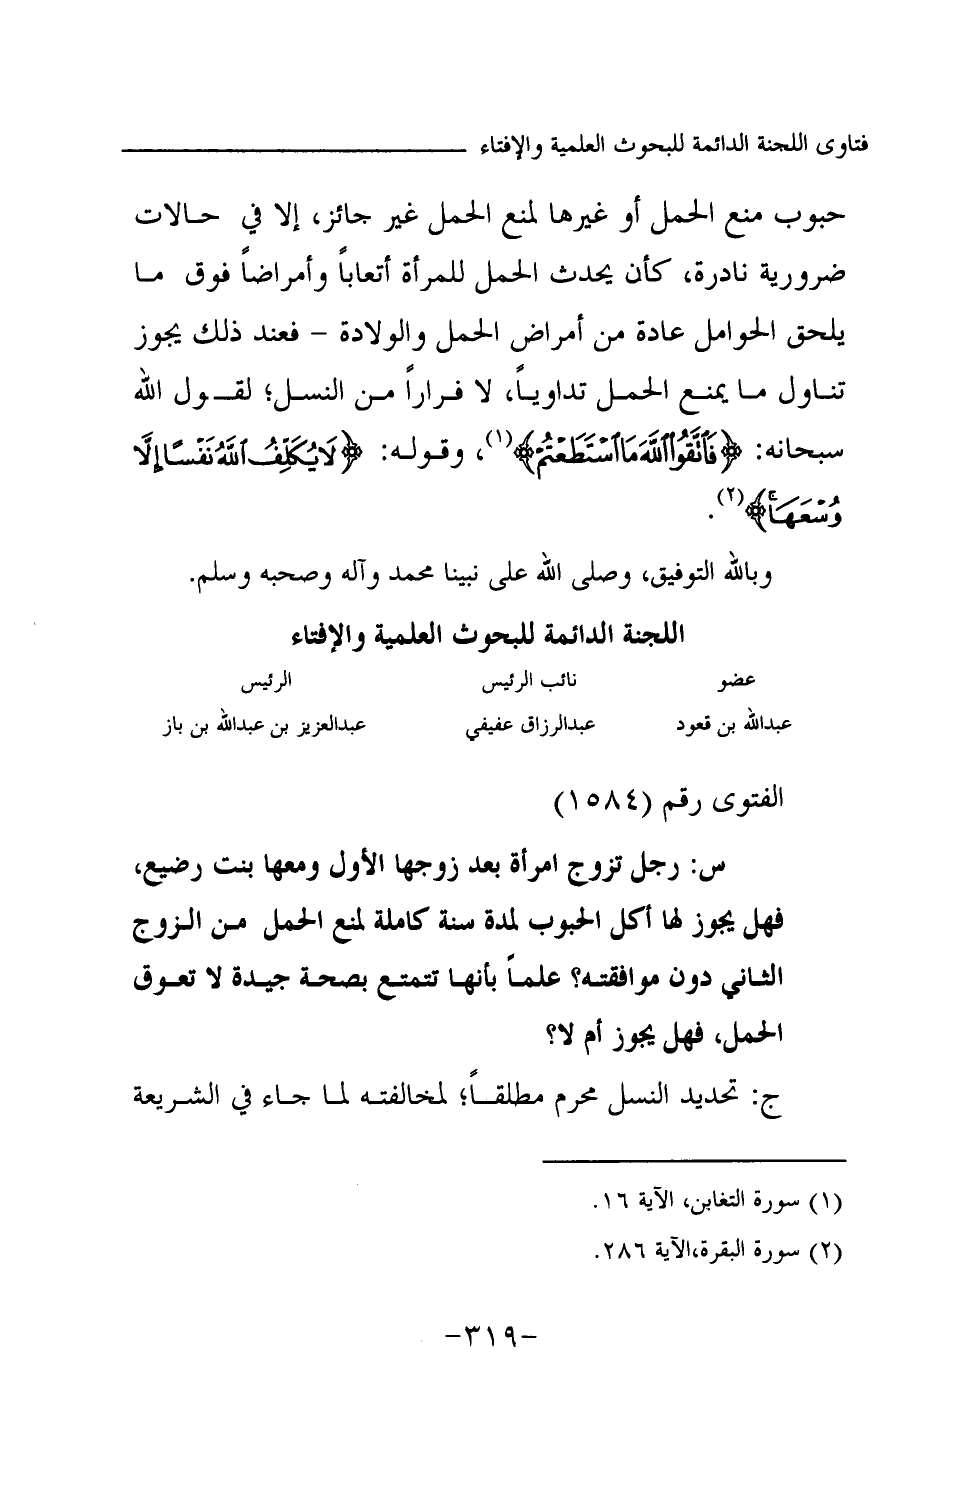 فتاوى اللجنة الدائمة للبحوث العلمية والإفتاء
حبوب منع الحمل أو غيرها لمنع الحمل غير جائز، إلا في حالات
ضرورية نادرة، كأن يحدث الحمل للمرأة أتعاباً وأمراضاً فوق ما
يلحق الحوامل عادة من أمراض الحمل والولادة - فعند ذلك يجوز
تناول ما يمنع الحمل تداوياً، لا فراراً من النسل؛ لقول الله
سبحانه: ﴿فَٱتَّقُوا۟ ٱللَّهَ مَا ٱسْتَطَعْتُمْ﴾(١)، وقوله: ﴿لَا يُكَلِّفُ ٱللَّهُ نَفْسًا إِلَّا
وُسْعَهَا ۚ﴾(٢).
وبالله التوفيق، وصلى الله على نبينا محمد وآله وصحبه وسلم.
اللجنة الدائمة للبحوث العلمية والإفتاء
عضو نائب الرئيس الرئيس
عبدالله بن قعود عبدالرزاق عفيفي عبدالعزيز بن عبدالله بن باز
الفتوى رقم (١٥٨٤)
س: رجل تزوج امرأة بعد زوجها الأول ومعها بنت رضيع،
فهل يجوز لها أكل الحبوب لمدة سنة كاملة لمنع الحمل من الزوج
الثاني دون موافقته؟ علماً بأنها تتمتع بصحة جيدة لا تعوق
الحمل، فهل يجوز أم لا؟
ج: تحديد النسل محرم مطلقاً؛ لمخالفته لما جاء في الشريعة
(١) سورة التغابن، الآية ١٦.
(٢) سورة البقرة،الآية ٢٨٦.
-٣١٩-